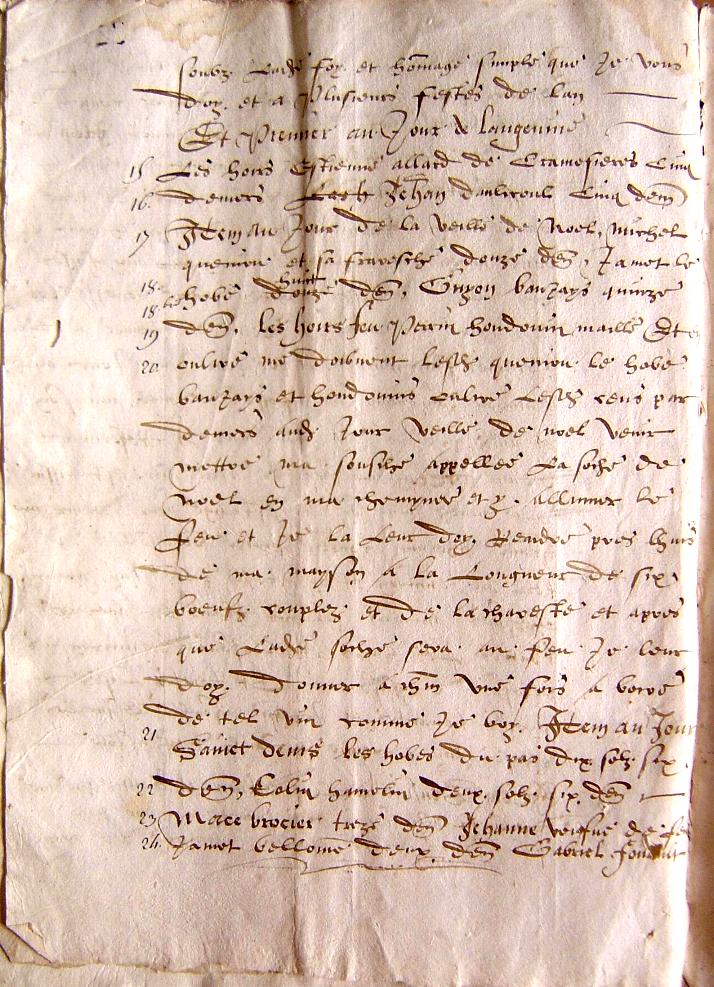 soubz ladte foy et homage simple que je vous
doy et a plusieurs festes de lan
Et premier au jour de langevine
15 Les hoirs Estienne allard de Cramesieres cinq
16 deniers Jehan cinq den
17 Item au jour de la veille de noel, michel
quenion et sa fraresche douze den, Jamet le
18 hobé douze huict den, Guyon bauzays quinze
18 le
19 den, les hoirs feu Perrin houdouin maille Et en
20 oultre me doibvent lesdz quenion le hobe
bauzays et houdouins oultre lesdz cens par
deniers audz jour veille de noel venir
mettre ma souche appellee la soche de
noel en ma chemynee et y allumer le
feu et je la leur doy rendre pres lhuis
de ma mayson a la longueur de six
boeufz couplez et de la charette et apres
que ladte soche sera au feu je leur
doy donner a chm une fois a boire
de tel vin comme je boy. Item au jour
21 Sainct denis les hobes du pas dix solz six
22 den, Colin hamelin deux solz six den
23 Mace brocier treze den Jehanne veufve de fe
24 Jamet bellome deux den Gabriel